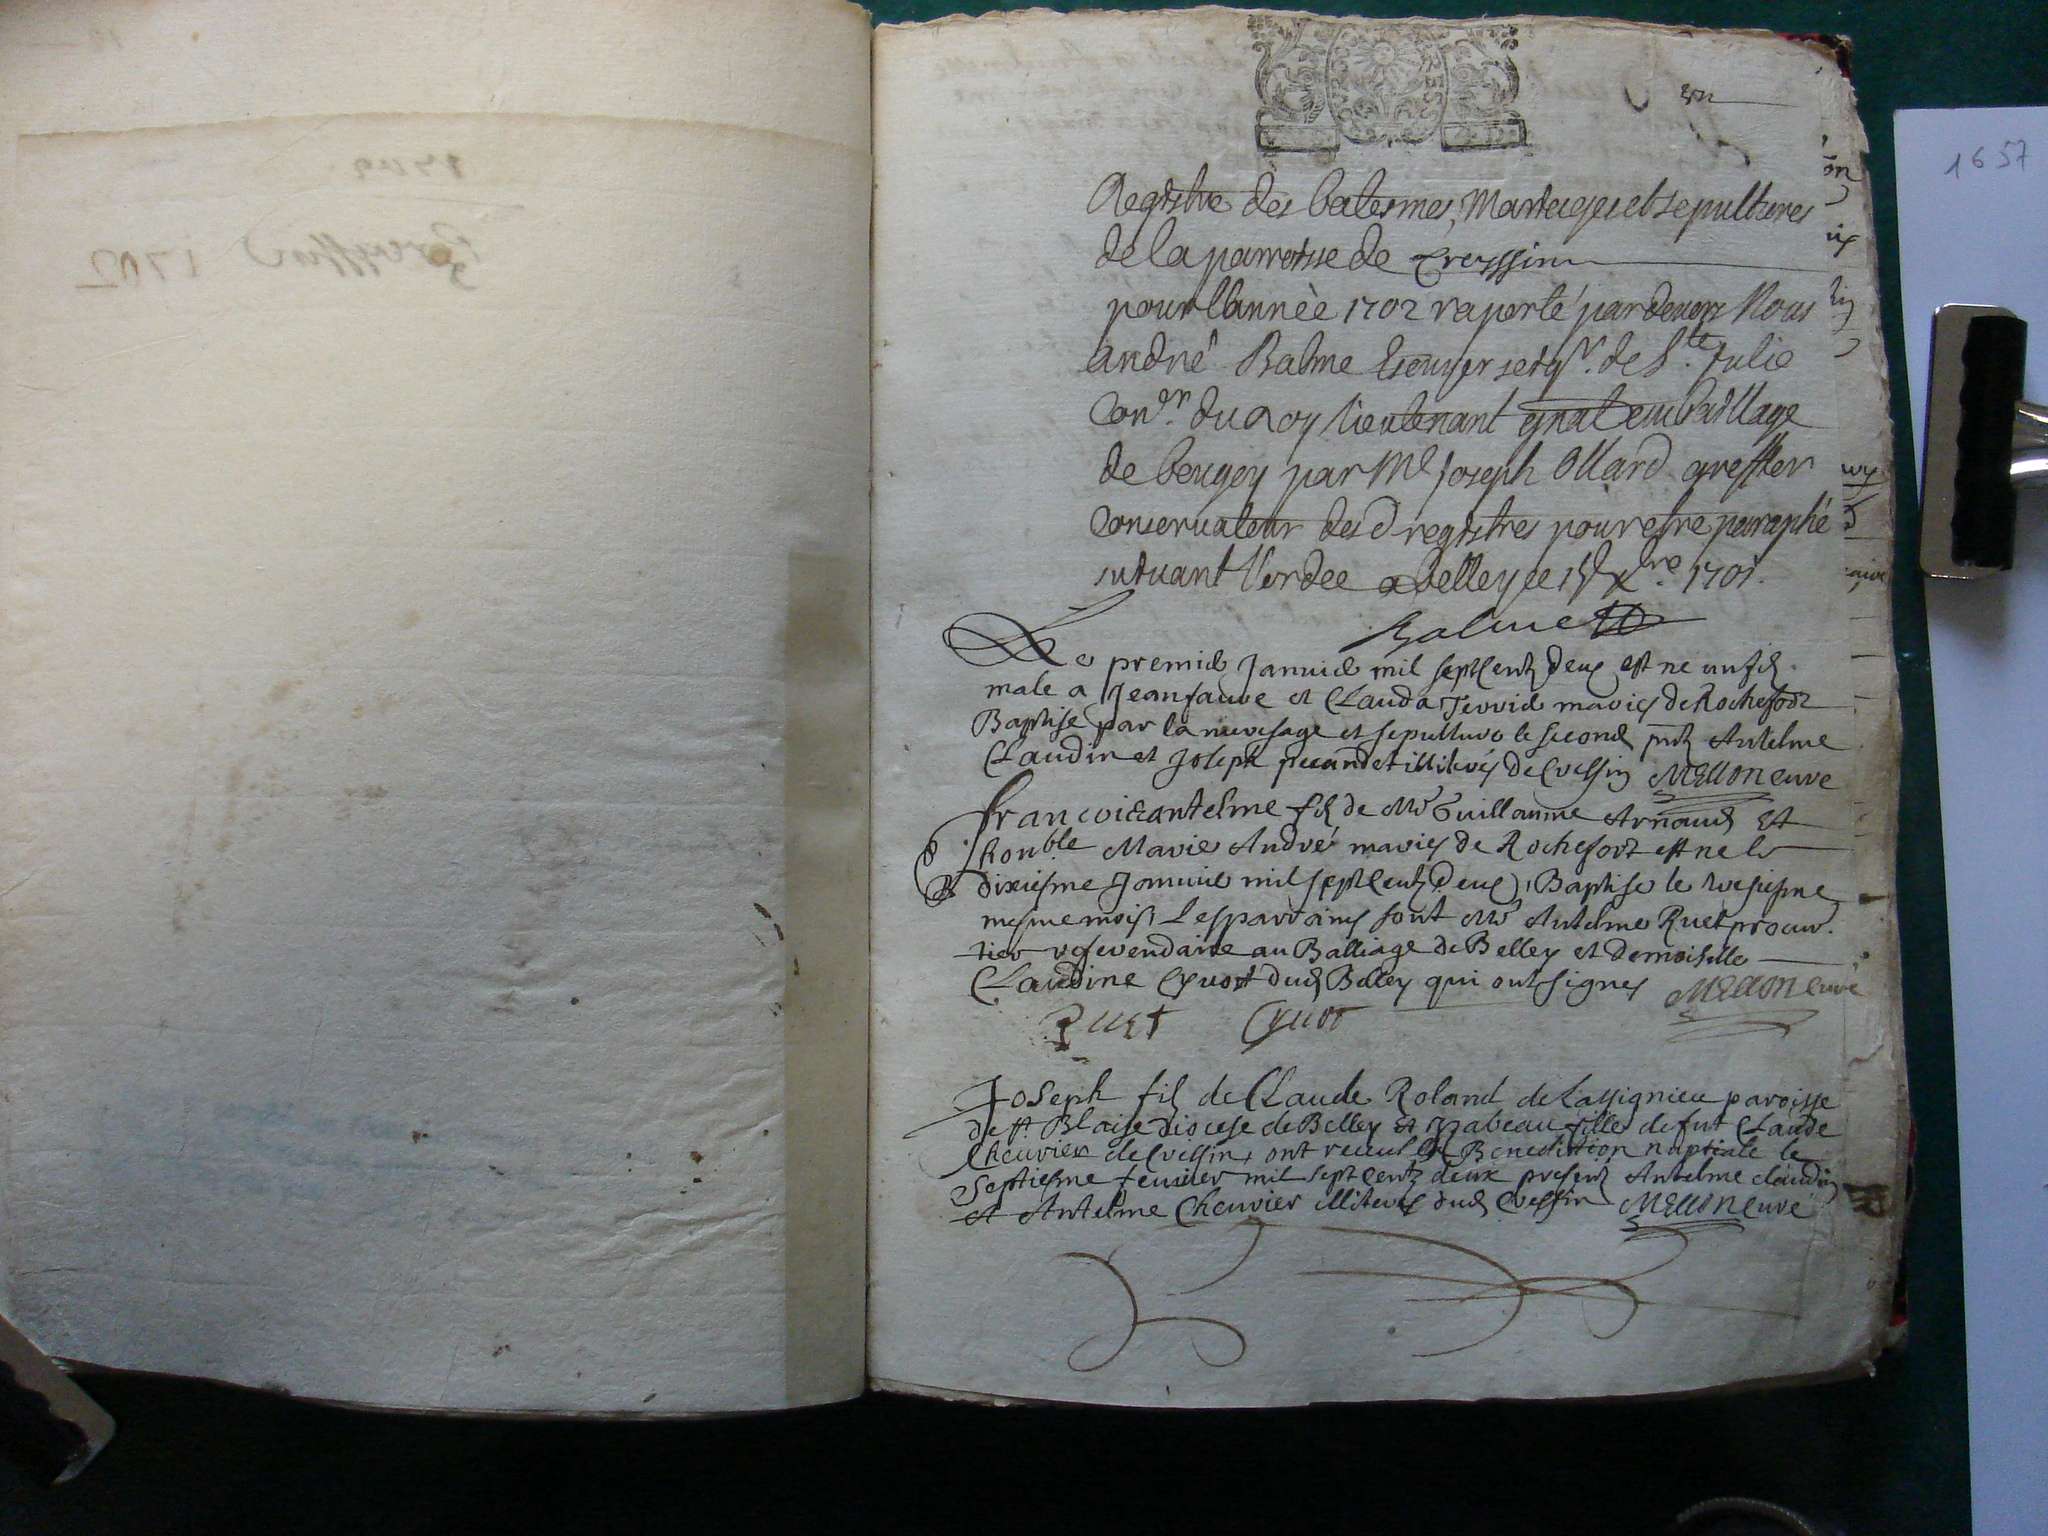 1657
un
Registre des batesmes, Mariages et sepultures
de la parroisse de Creyssin
pour l'année 1702 raporté par devers Nous
andré Balme Escuyer seigr. de Ste. Julie
Conser. du Roy lieutenant gnal au bailliage
de beugey par Me Joseph Ollard greffier
Conservateur desd registres pour estre paraphé
suivant l'ordce a belley ce 15 Xbre. 1701.
Balme
Le premie Janvie mil sept centz deux est ne un fils
male a Jean faure et Clauda maries de Rochefort
Baptise par la mere sage et sepulturo le second pntz Antelme
Claudin et Joseph illiteres de Cressin Melloneuve
francois antelme fils de Mr Guillaume Arnaud Et
honble Marie André maries de Rochefort est ne le
dixiesme Janvie mil sept centz deux, Baptise le
mesme mois, Les parrains sont Mr Antelme Ruet procur.
tier referendaire au Balliage de Belley et demoiselle
Claudine Cyvot dud Belley qui ont signes Melloneuve
Ruet Cyvot
Joseph fils de Claude Roland de Lassignieu paroisse
de st. Blaise diocese de Belley et Isabeau fille de fut Claude
Cheuvier de Cressin, ont receus la Benediction nuptiale le
Septiesme feuvier mil sept centz deux presentz Antelme claudin
et Antelme Cheuvier illiteres dud Cressin Melloneuve